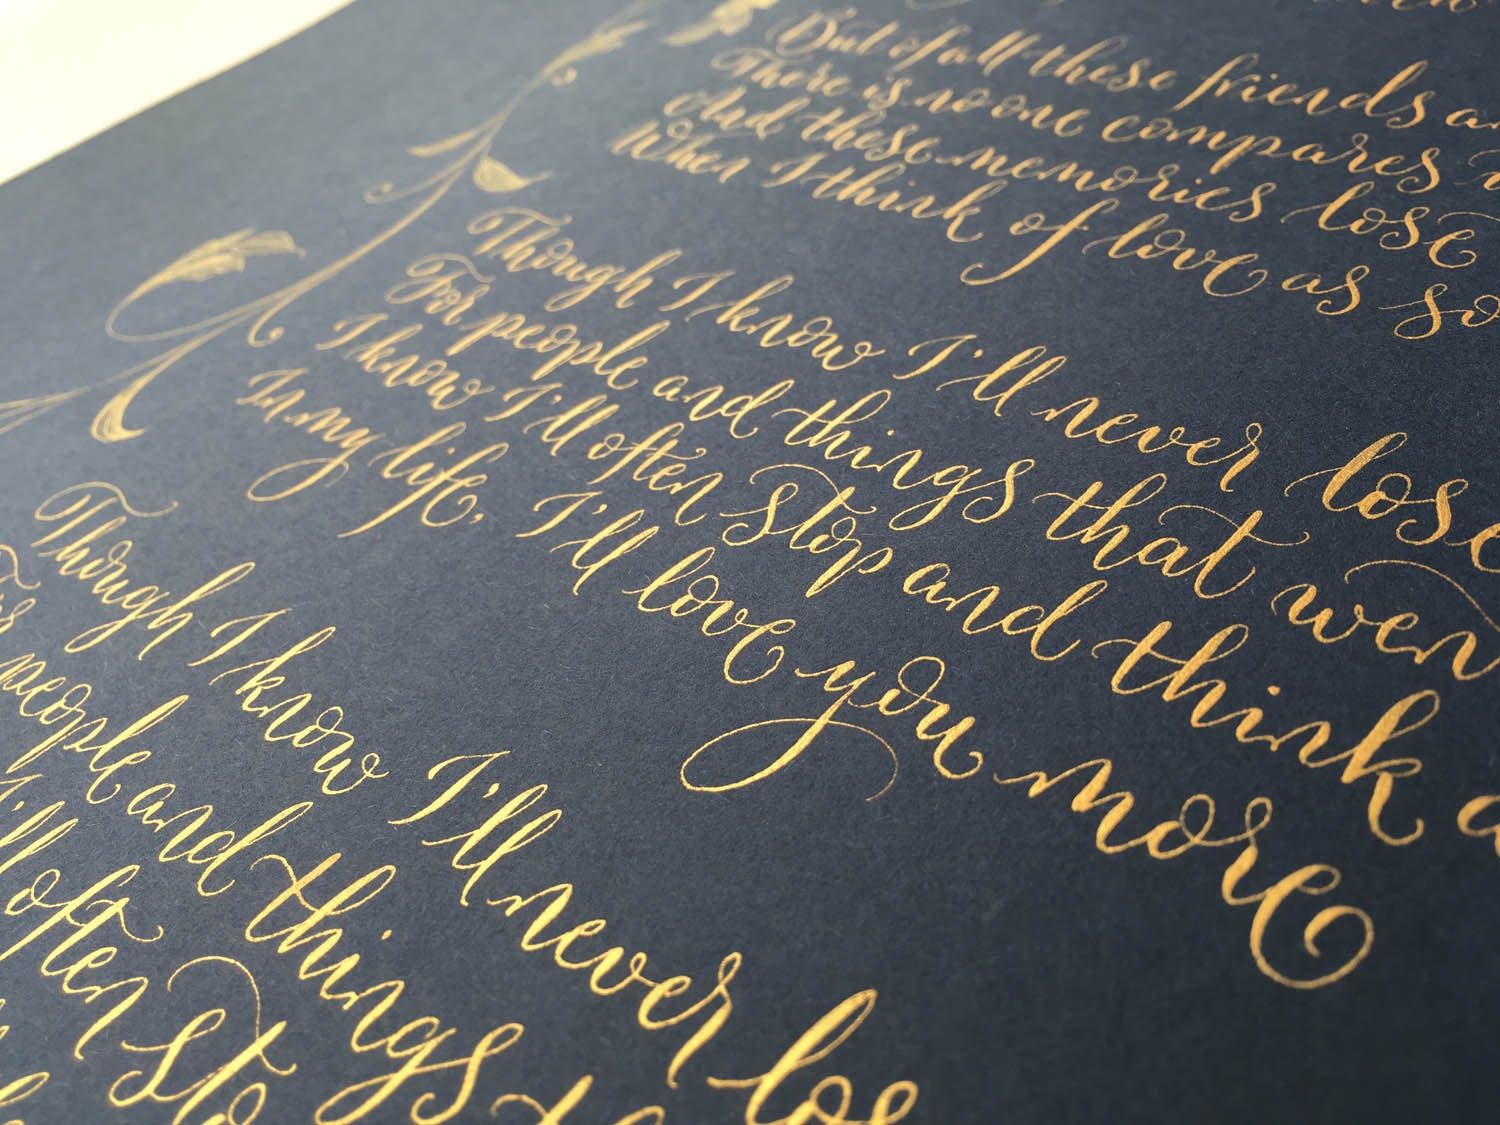 But of all these friends
There is no one compares
And these memories lose
When I think of love as so
Though I know I'll never lose
For people and things that wen
I know I'll often stop and think a
In my life, I'll love you more
Though I know I'll never los
people and things
I'll often sto